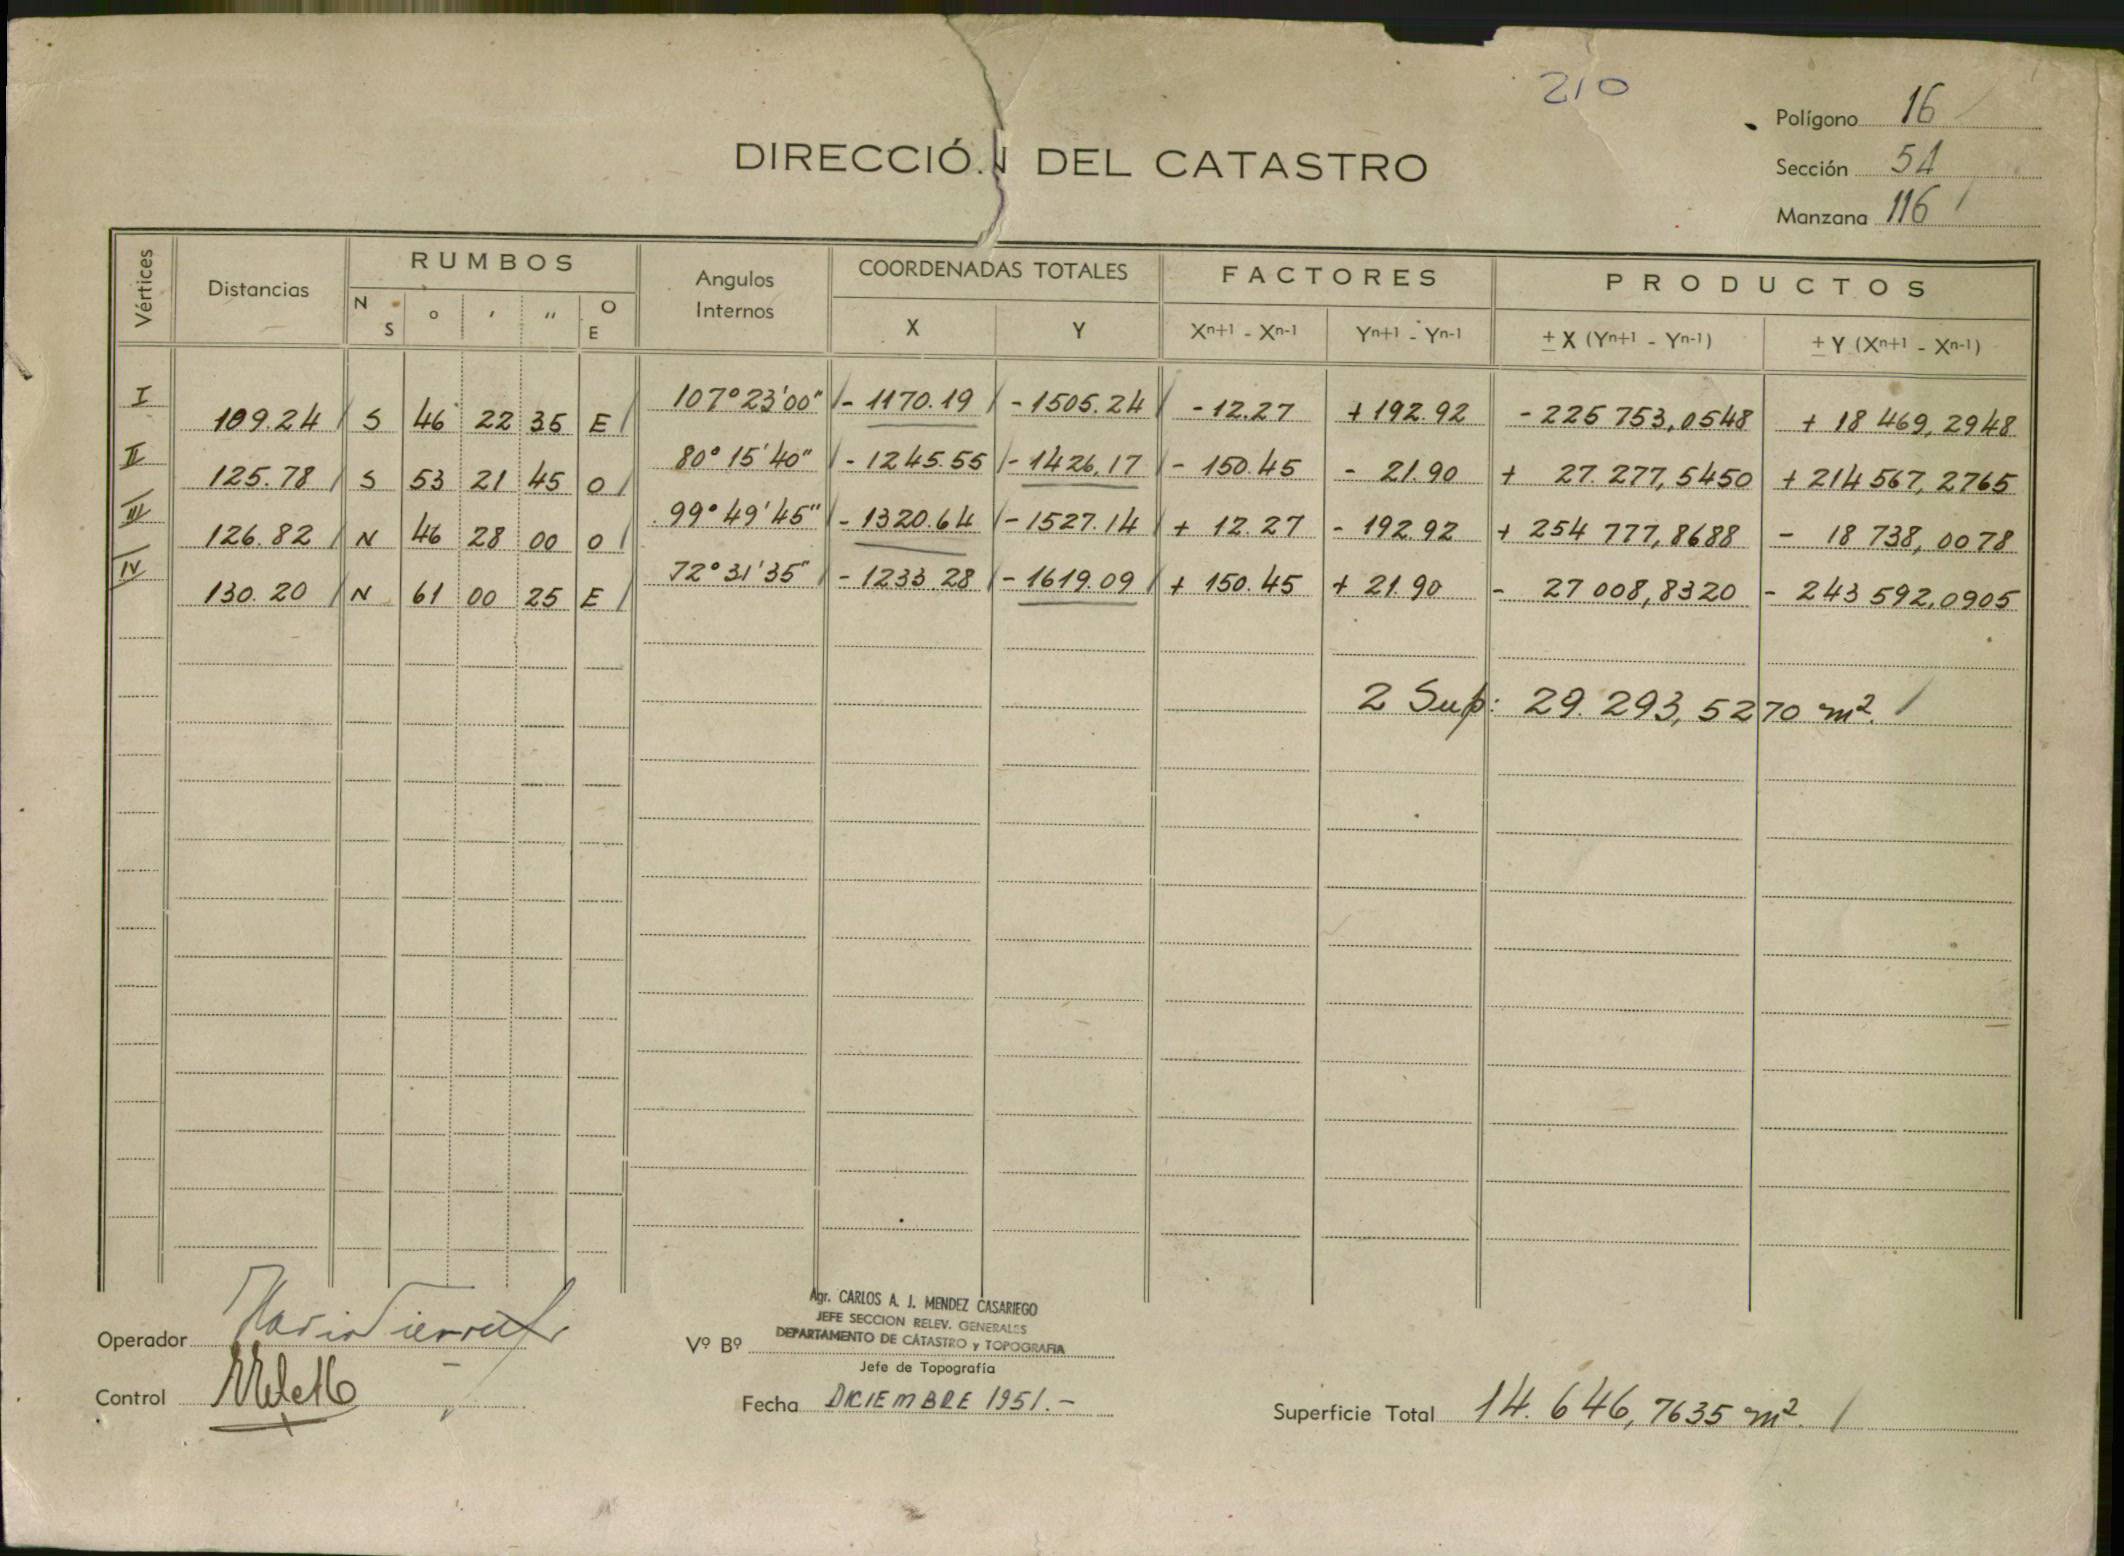 210
Polígono 16
DIRECCIÓN DEL CATASTRO
Sección 54
Manzana 116
Vértices Distancias RUMBOS Angulos Internos COORDENADAS TOTALES FACTORES PRODUCTOS
N S ° ' " O E X Y Xn+1 - Xn-1 Yn+1 - Yn-1 ± X (Yn+1 - Yn-1) ± Y (Xn+1 - Xn-1)
I 109.24 S 46 22 35 E 107°23'00" - 1170.19 - 1505.24 - 12.27 + 192.92 - 225 753,0548 + 18 469,2948
II 125.78 S 53 21 45 O 80°15'40" - 1245.55 - 1426.17 - 150.45 - 21.90 + 27.277,5450 + 214 567,2765
III 126.82 N 46 28 00 O 99°49'45" - 1320.64 - 1527.14 + 12.27 - 192.92 + 254 777,8688 - 18 738,0078
IV 130.20 N 61 00 25 E 72°31'35" - 1233.28 - 1619.09 + 150.45 + 21.90 - 27 008,8320 - 243 592,0905
2 Sup: 29.293,5270 m².
Agr. CARLOS A. J. MENDEZ CASARIEGO
JEFE SECCION RELEV. GENERALES
DEPARTAMENTO DE CATASTRO y TOPOGRAFIA
Operador
Vº Bº
Jefe de Topografía
Control
Fecha DICIEMBRE 1951.-
Superficie Total 14.646,7635 m².